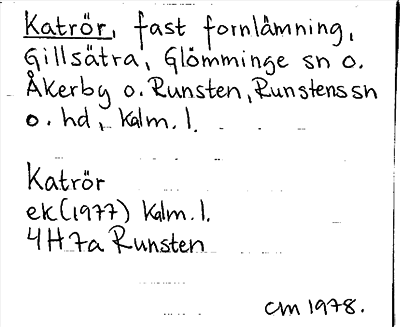 Katrör, fast fornlämning,
Gillsätra, Glömminge sn o.
Åkerby o. Runsten, Runstens sn
o. hd, Kalm. l.
Katrör
ek (1977) Kalm. l.
4H 7a Runsten
CM 1978.